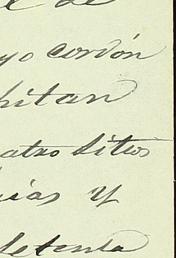 de
yo cordón
hitan
atro sitios
cias y
detenta